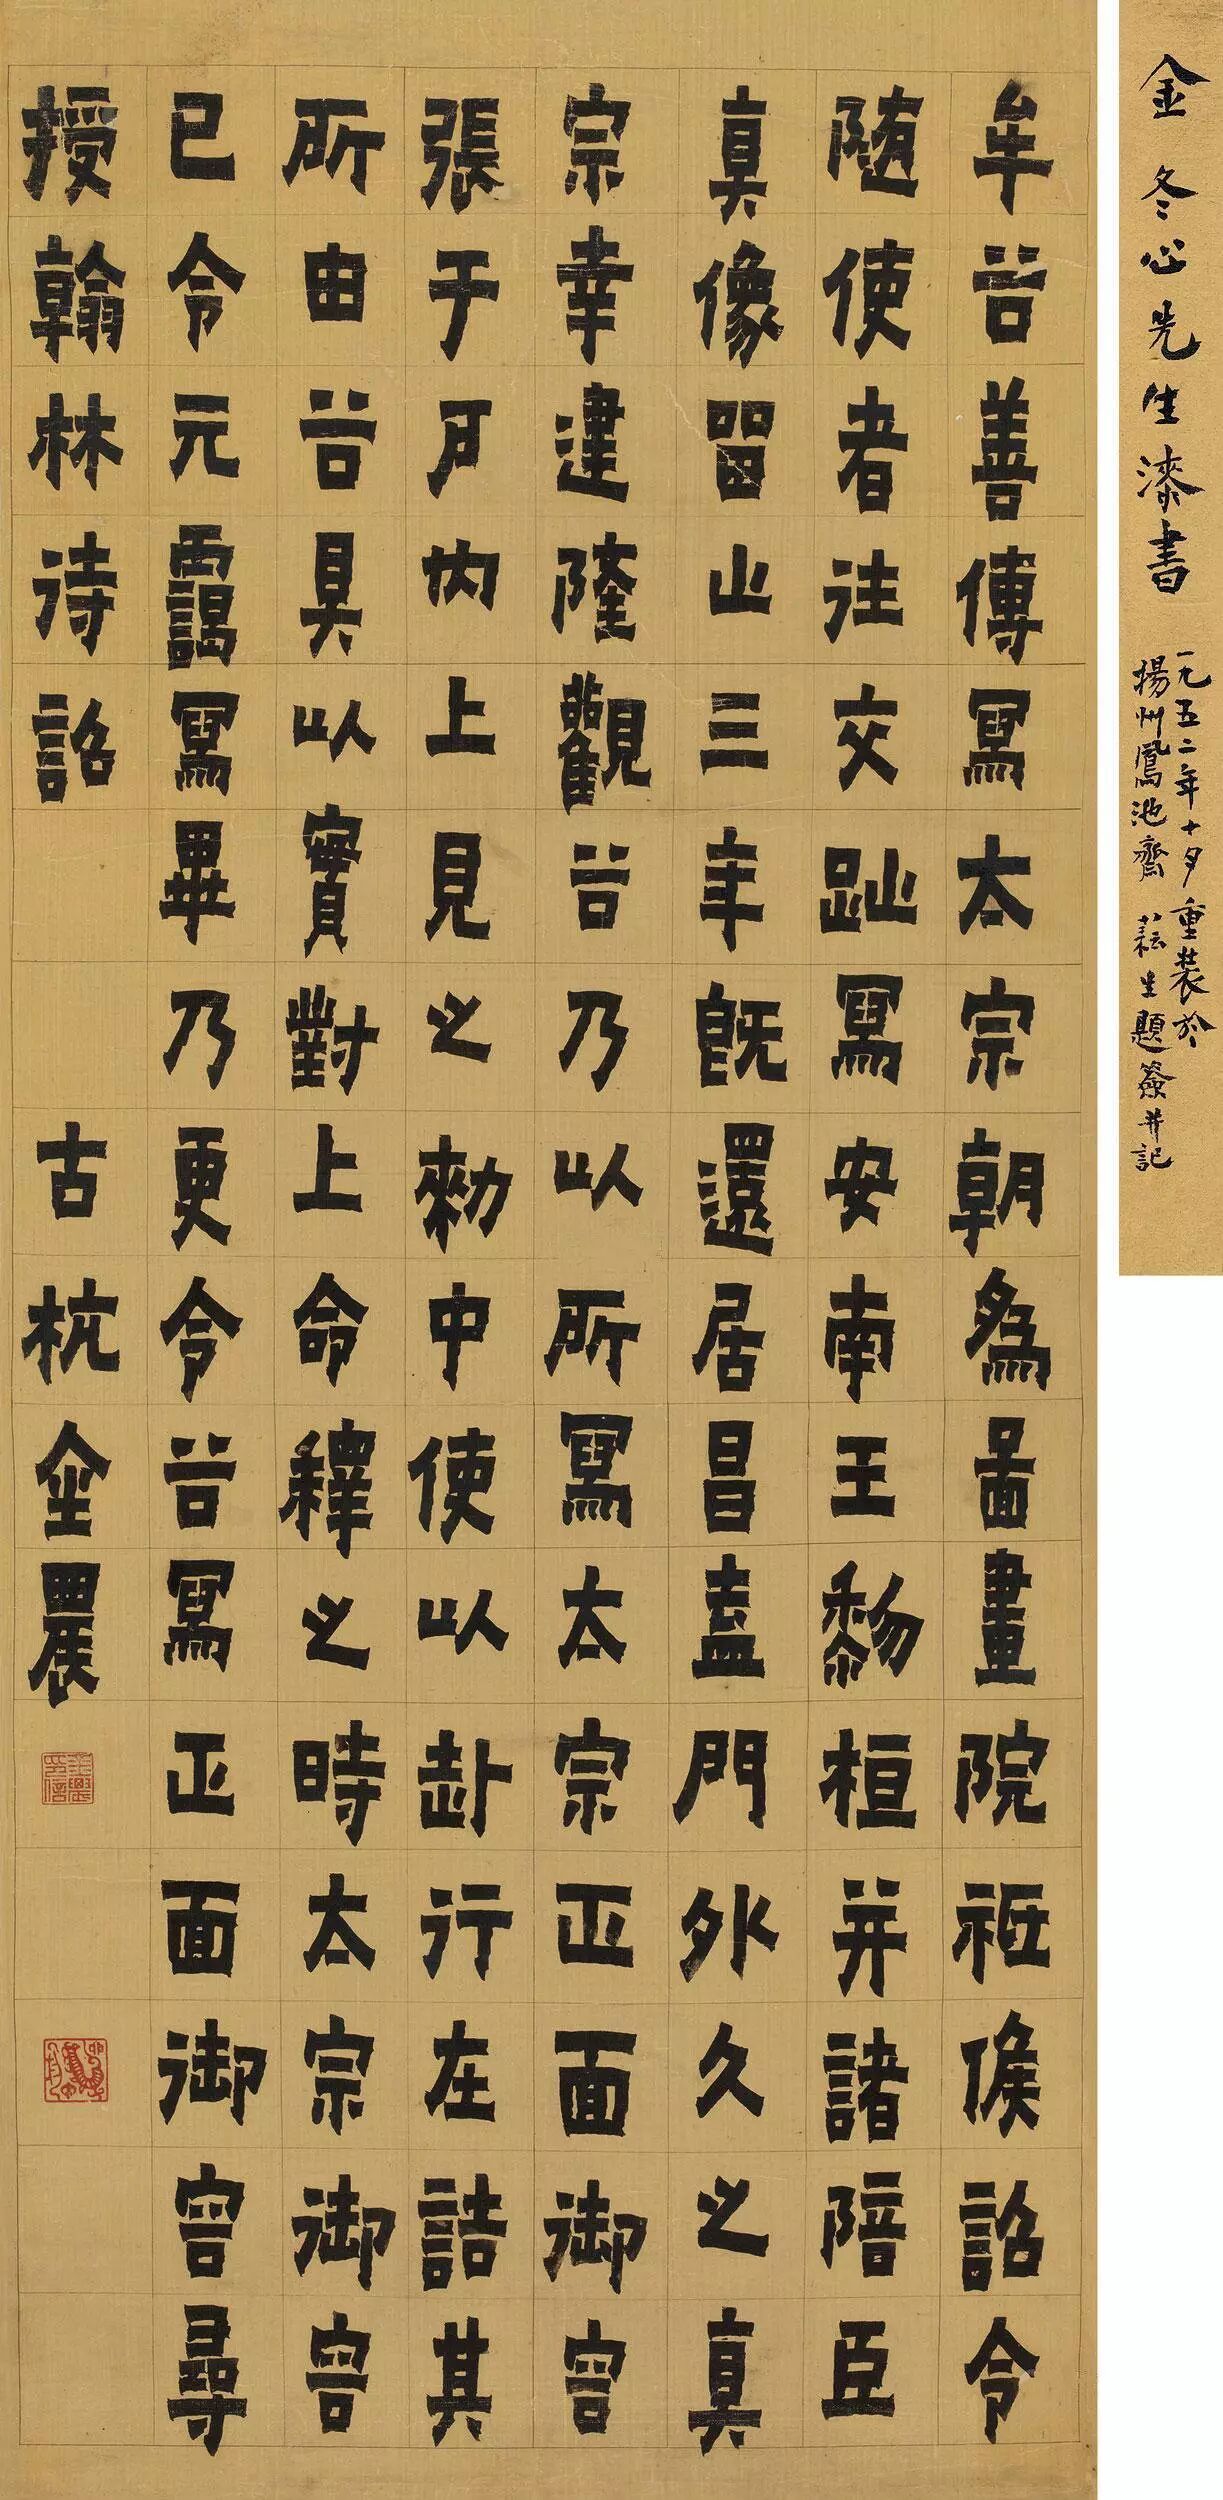 金冬心先生漆書
一九五二年十月重裝於
揚州鳳池齋 耘生題簽并記
牟谷善傳寫太宗朝為圖畫院祗候詔令
隨使者往交趾寫安南王黎桓并諸陪臣
真像留止三年既還居昌盍門外久之真
宗幸建隆觀谷乃以所寫太宗正面御容
張于戶內上見之勑中使以赴行在詰其
所由谷具以實對上命釋之時太宗御容
已令元靄寫畢乃更令谷寫正面御容尋
授翰林待詔 古杭金農
金農印信